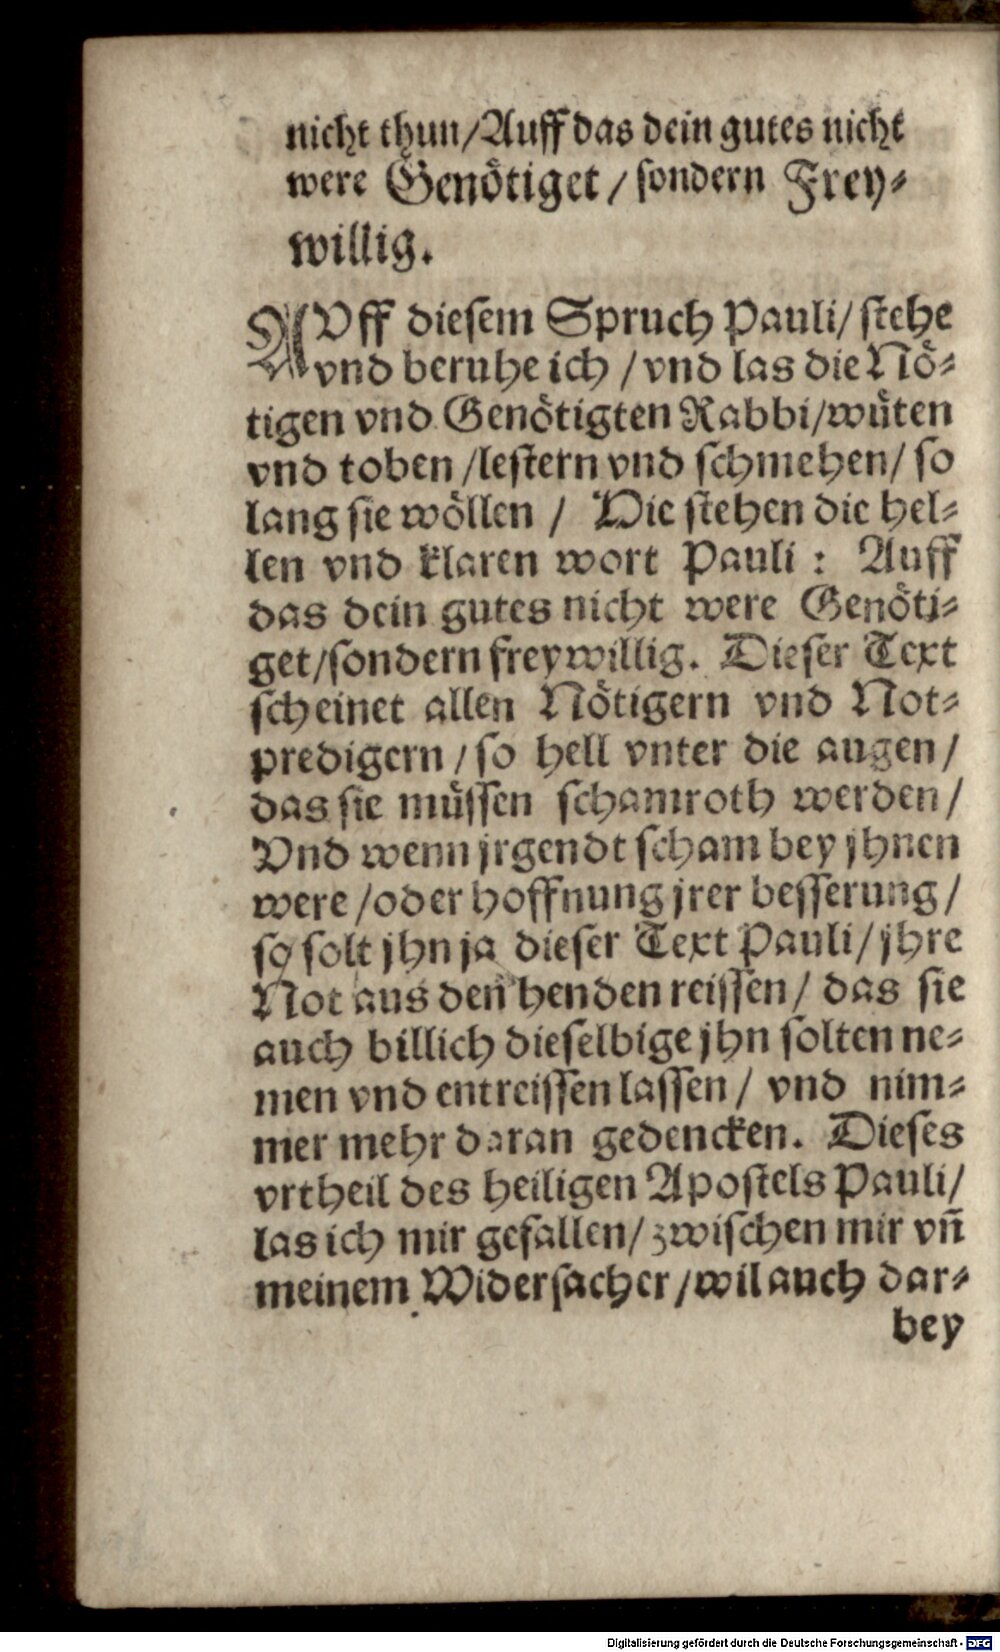 nicht thun/Auff das dein gutes nicht
were Genötiget/sondern Frey⸗
willig.
AVff diesem Spruch Pauli/stehe
vnd beruhe ich/vnd las die Nö⸗
tigen vnd Genötigten Rabbi/wüten
vnd toben/lestern vnd schmehen/so
lang sie wöllen/ Die stehen die hel⸗
len vnd klaren wort Pauli: Auff
das dein gutes nicht were Genöti⸗
get/sondern freywillig. Dieser Text
scheinet allen Nötigern vnd Not⸗
predigern/so hell vnter die augen/
das sie müssen schamroth werden/
Vnd wenn jrgendt scham bey jhnen
were/oder hoffnung jrer besserung/
so solt jhn ja dieser Text Pauli/jhre
Not aus den henden reissen/das sie
auch billich dieselbige jhn solten ne⸗
men vnd entreissen lassen/ vnd nim⸗
mer mehr daran gedencken. Dieses
vrtheil des heiligen Apostels Pauli/
las ich mir gefallen/zwischen mir vñ
meinem Widersacher/wil auch dar⸗
bey
Digitalisierung gefördert durch die Deutsche Forschungsgemeinschaft - DFG